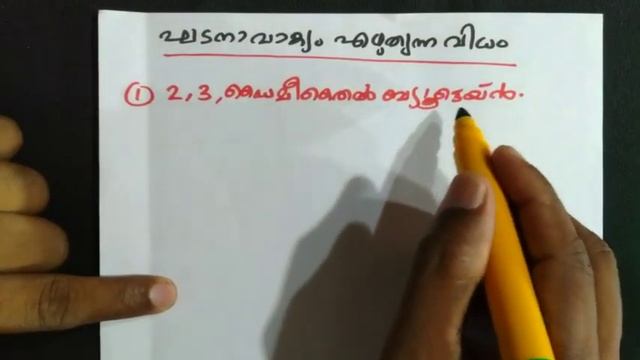 ഘടനാവാക്യം എഴുതുന്ന വിധം
① 2, 3, ഡൈമീതൈൽ ബ്യൂട്ടെയ്ൻ.